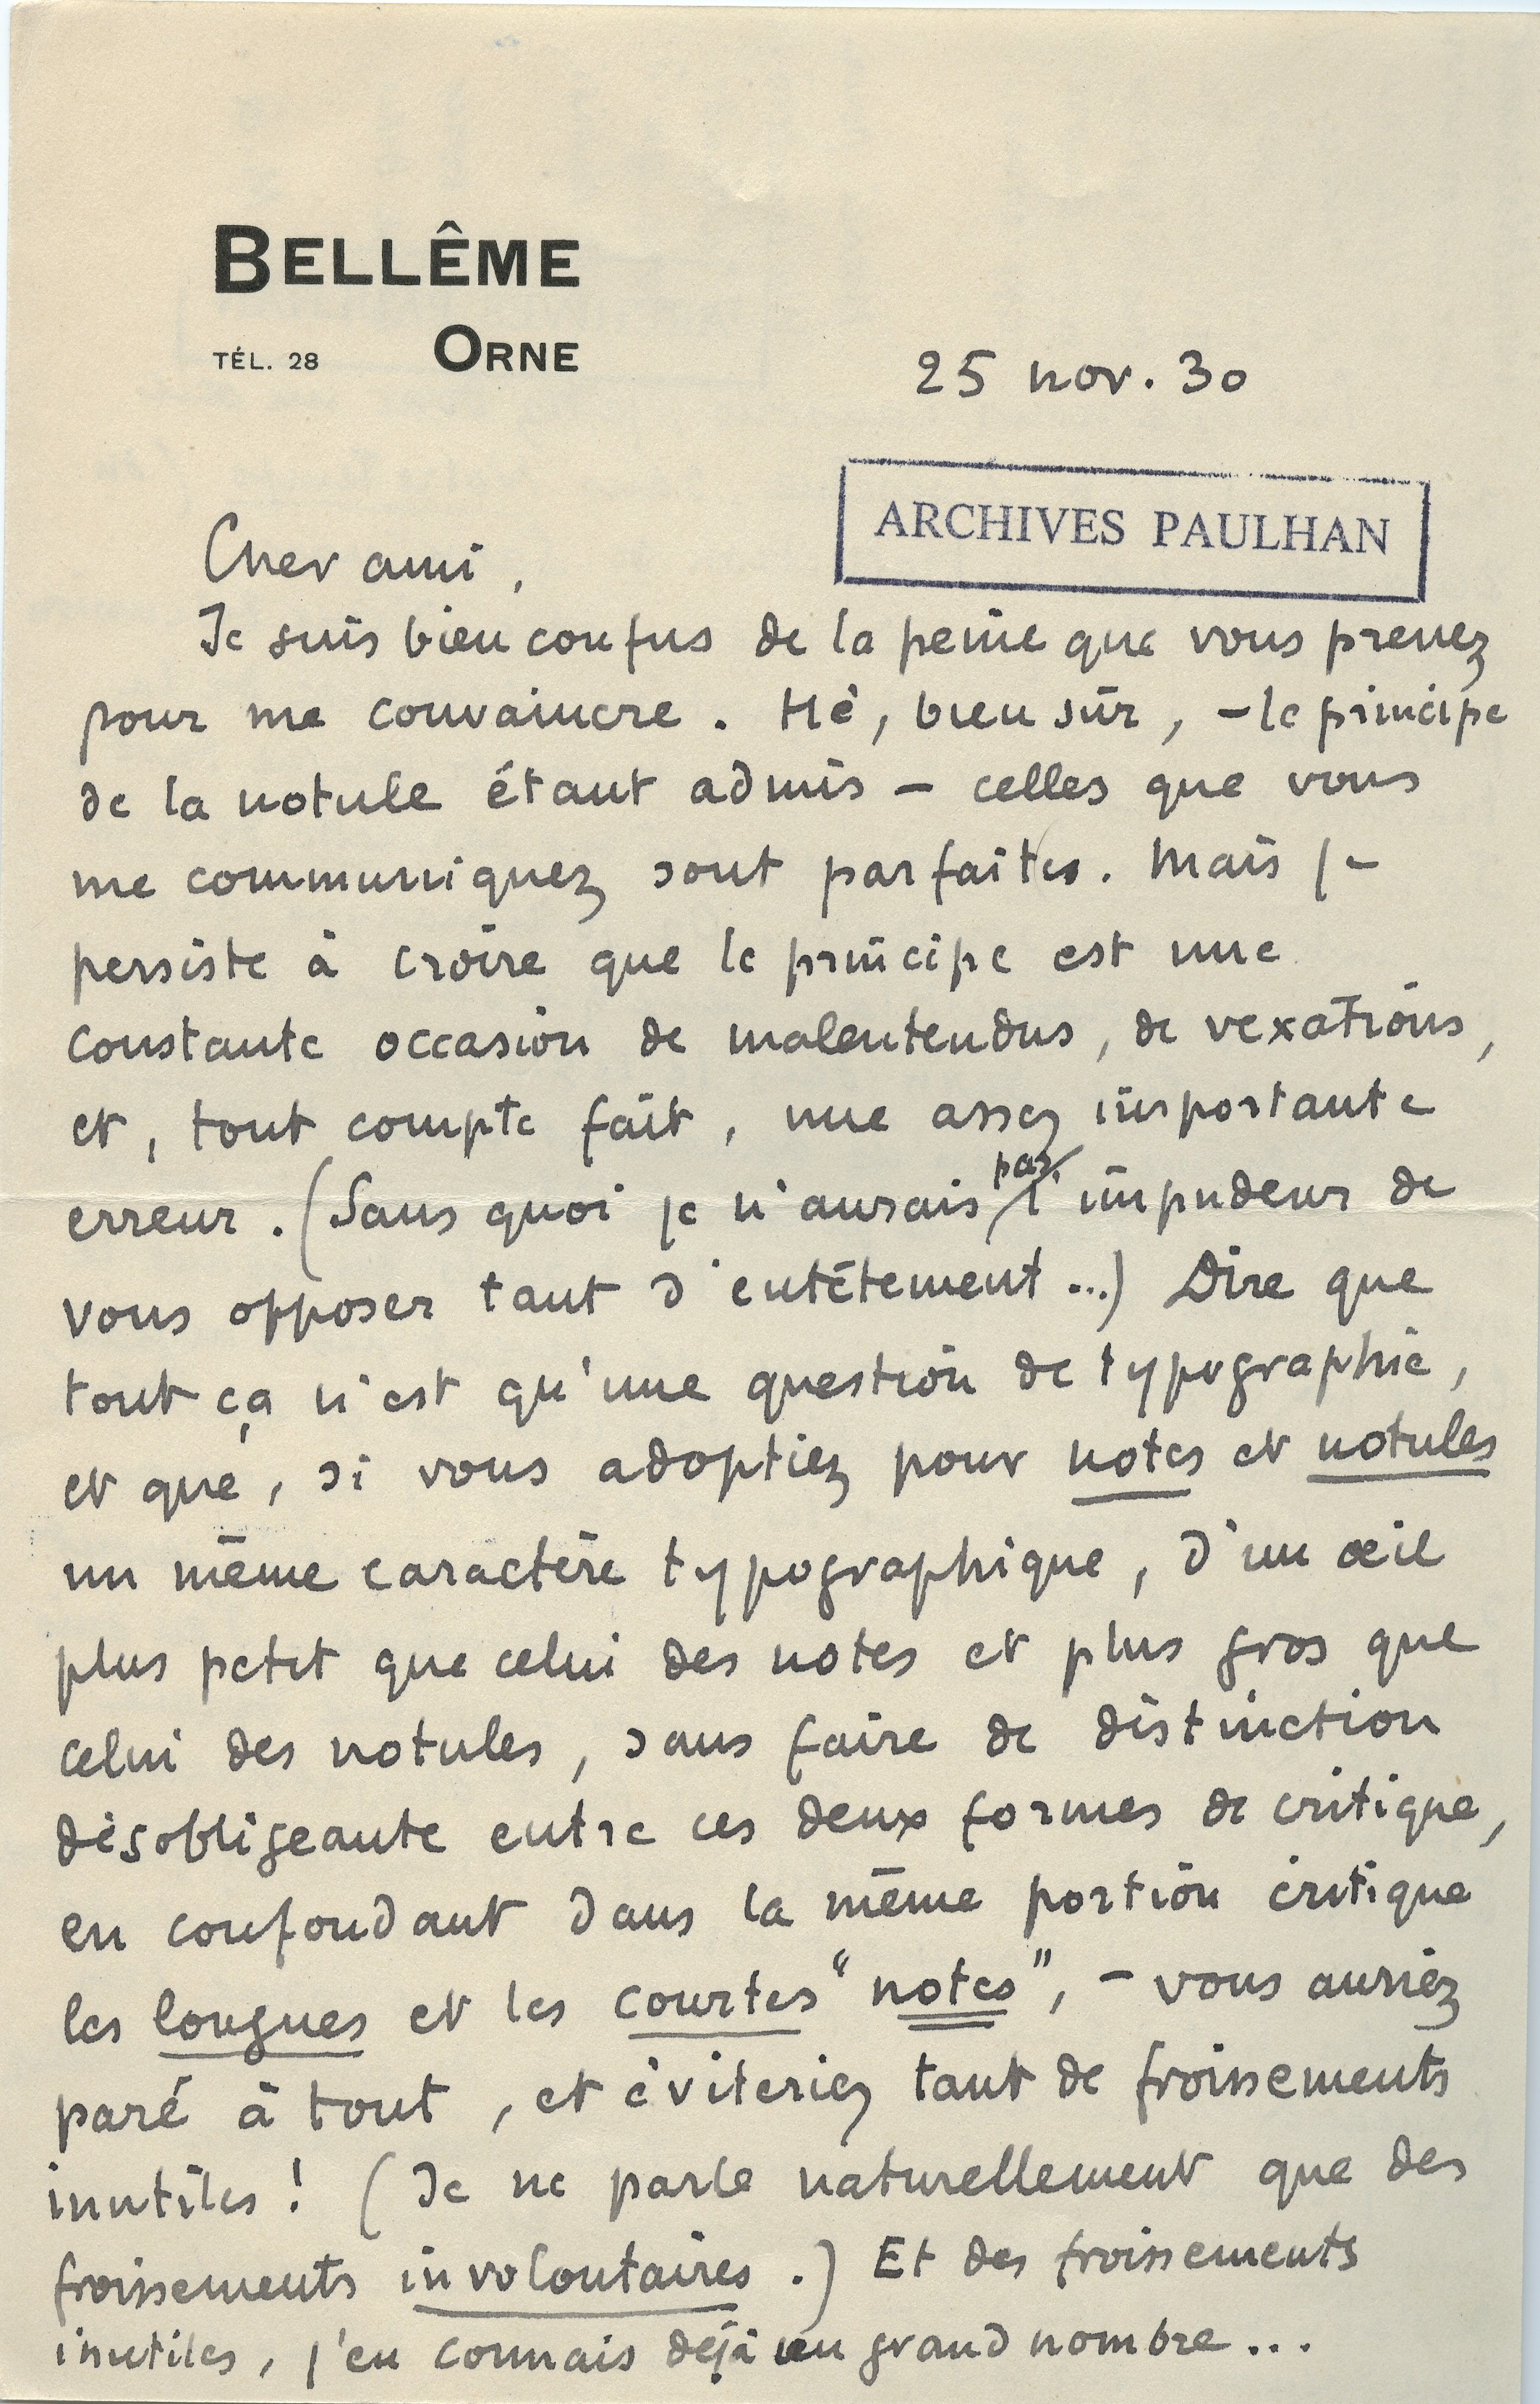 BELLÊME
TÉL. 28 ORNE
25 nov. 30
ARCHIVES PAULHAN
Cher ami,
Je suis bien confus de la peine que vous prenez
pour me convaincre. Hé, bien sûr, – le principe
de la notule étant admis – celles que vous
me communiquez sont parfaites. Mais je
persiste à croire que le principe est une
constante occasion de malentendus, de vexations,
et, tout compte fait, une assez importante
erreur. (Sans quoi je n'aurais pas l'impudeur de
vous opposer tant d'entêtement...) Dire que
tout ça n'est qu'une question de typographie,
et que, si vous adoptiez pour notes et notules
un même caractère typographique, d'un œil
plus petit que celui des notes et plus gros que
celui des notules, sans faire de distinction
désobligeante entre ces deux formes de critique,
en confondant dans la même portion critique
les longues et les courtes "notes", – vous auriez
paré à tout, et éviteriez tant de froissements
inutiles! (Je ne parle naturellement que des
froissements involontaires.) Et des froissements
inutiles, j'en connais déjà un grand nombre...